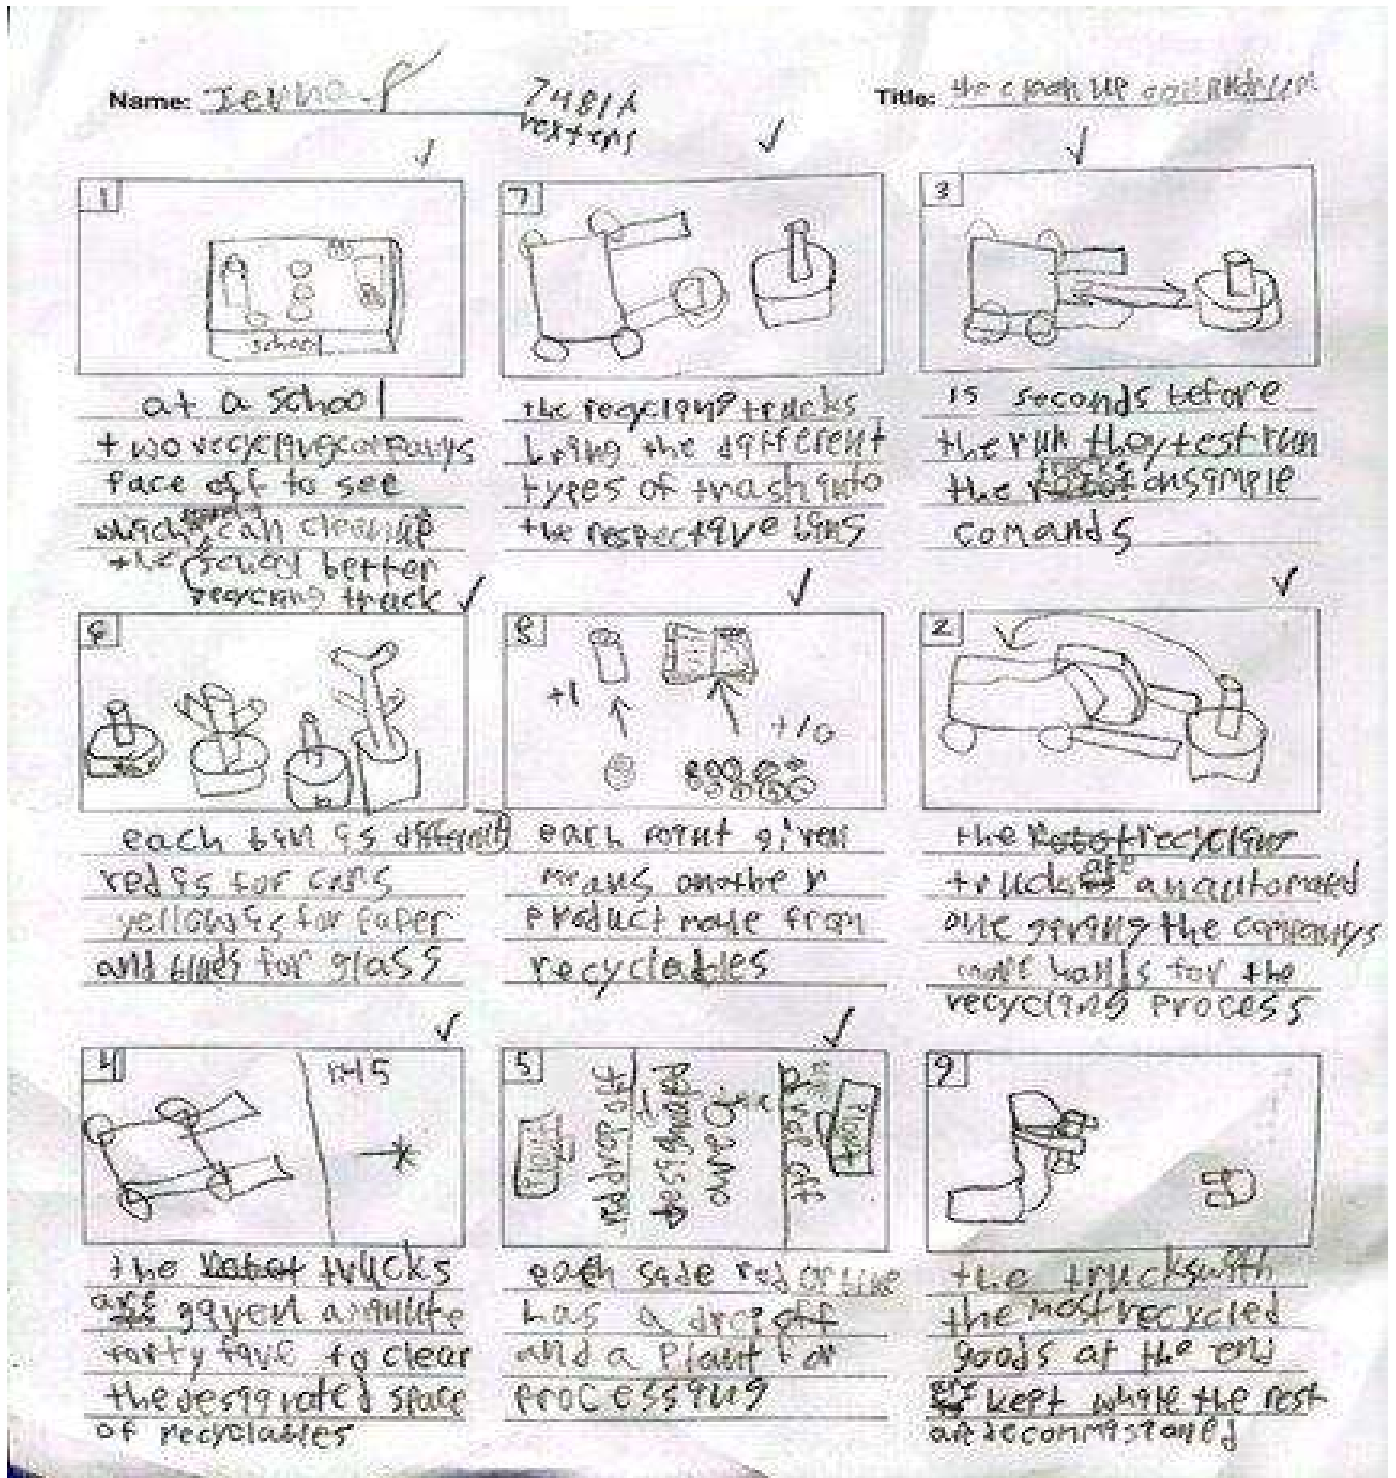 Name:
7481A
Title: the clean up
1
school
at a school
two recycling companys
face off to see
which can clean up
the school better
recycling truck
7
the recycling trucks
bring the different
types of trash into
the respective bins
3
15 seconds before
the run they test run
the on simple
comands
6
each bin is different
red is for cans
yellow is for paper
and blue is for glass
8
+1
+10
each point given
means another
product made from
recyclables
2
the recycling
trucks are an automated
one giving the companys
more hands for the
recycling process
4
1:45
the robot trucks
are given a minute
forty five to clear
the designated space
of recyclables
5
Plant
red drop off
designated
drop off
Plant
each side red or blue
has a drop off
and a plant for
processing
9
the trucks with
the most recycled
goods at the end
kept while the rest
are decommistoned